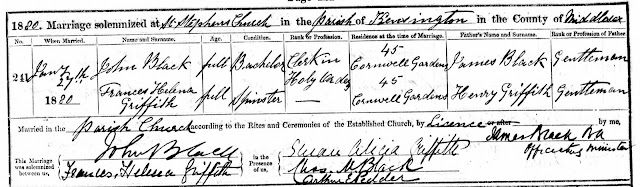 1880. Marriage solemnized at St Stephens Church in the Parish of Kensington in the County of Middlesex
No. When Married. Name and Surname. Age. Condition. Rank or Profession. Residence at the time of Marriage. Father's Name and Surname. Rank or Profession of Father.
241 Jany 27th 1880 John Black full Bachelor Clerk in Holy Orders 45 Cornwell Gardens James Black Gentleman
Frances Helena Griffith full Spinster — 45 Cornwell Gardens Henry Griffith Gentleman
Married in the Parish Church according to the Rites and Ceremonies of the Established Church, by Licence or after by me,
James Black
Officiating Minister
This Marriage was solemnized between us, John Black
Frances Helena Griffith
In the Presence of us, Susan Alicia Griffith
Black
Arthur